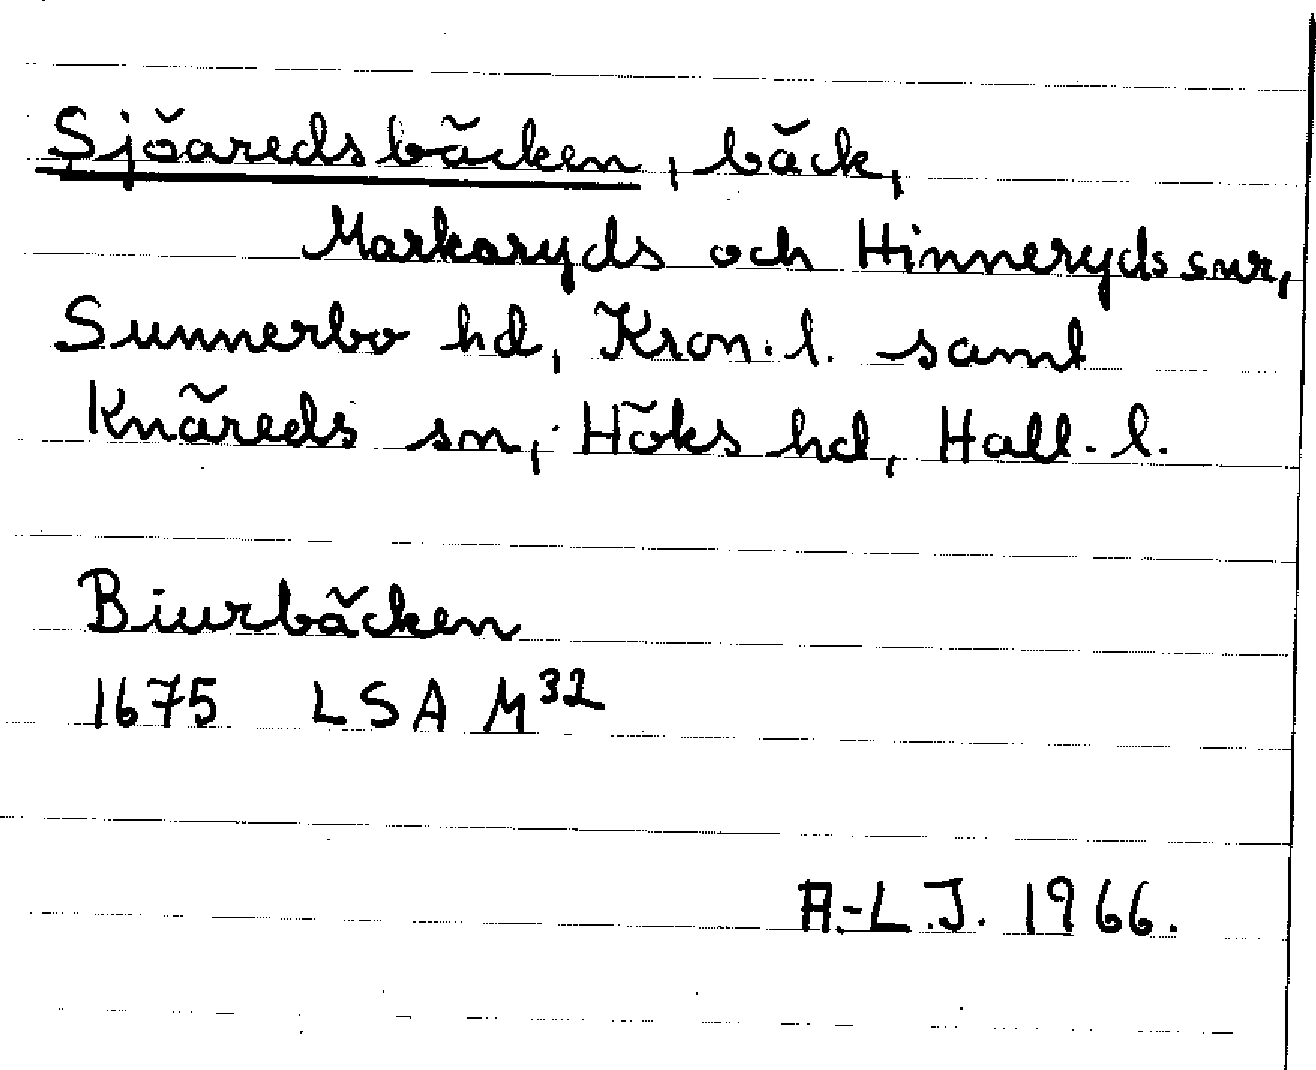 Sjöaredsbäcken, bäck,
Markaryds och Hinneryds snr,
Sunnerbo hd, Kron. l. samt
Knäreds sn, Höks hd, Hall. l.
Biurbäcken
1675 LSA M32
A.-L.J. 1966.